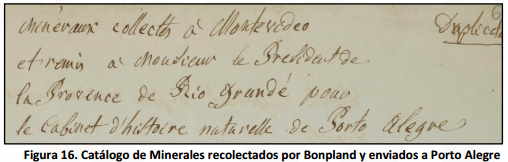 minéraux collectés a Montevideo
Duplicata
et remis a Monsieur le President de
la Provence de Rio Grandé pour
le Cabinet d'histoire naturelle de Porto Alegre
Figura 16. Catálogo de Minerales recolectados por Bonpland y enviados a Porto Alegre